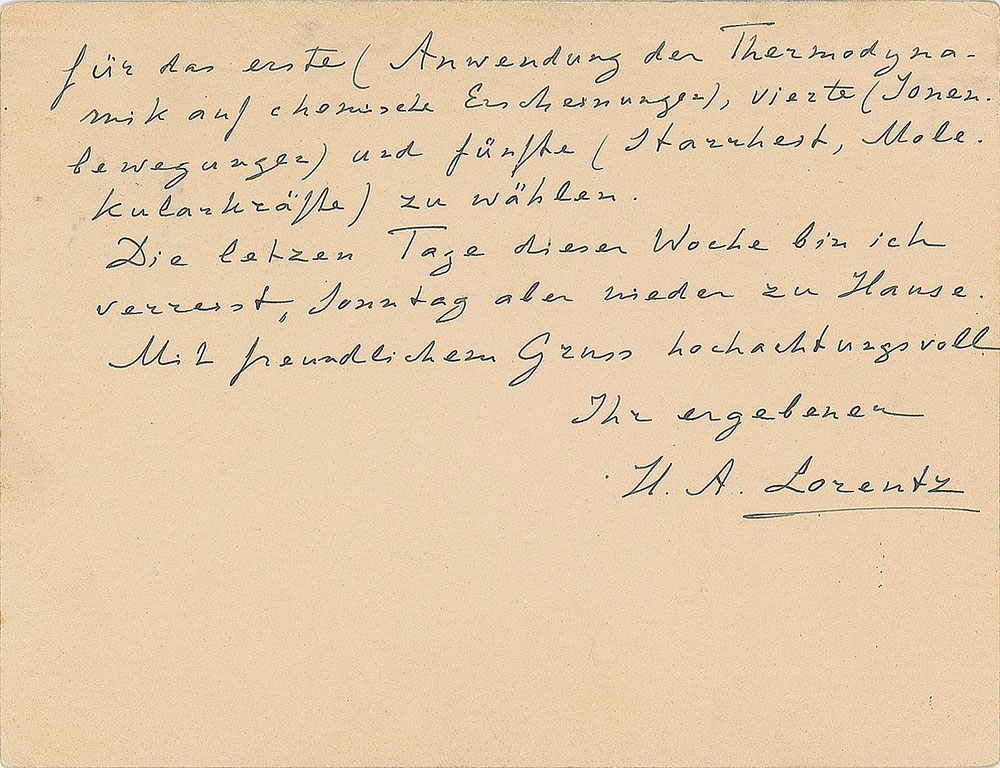 für das erste (Anwendung der Thermodyna-
mik auf chemische Erscheinungen), vierte (Ionen-
bewegungen) und fünfte (Starrheit, Mole-
kularkräfte) zu wählen.
Die letzen Tage dieser Woche bin ich
verreist, Sonntag aber wieder zu Hause.
Mit freundlichem Gruss hochachtungsvoll
Ihr ergebener
H. A. Lorentz